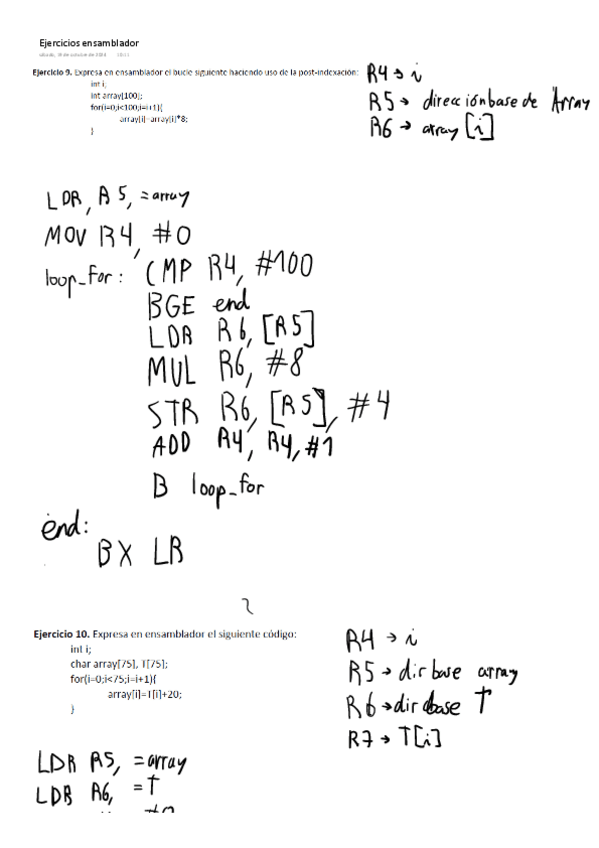 Ejercicios ensamblador
Ejercicio 9. Expresa en ensamblador el bucle siguiente haciendo uso de la post-indexación:
int i;
int array[100];
for(i=0;i<100;i=i+1){
array[i]=array[i]*8;
}
R4 → i
R5 → dirección base de Array
R6 → array [i]
LDR, R5, =array
MOV R4, #0
loop_for: CMP R4, #100
BGE end
LDR R6, [R5]
MUL R6, #8
STR R6, [R5], #4
ADD R4, R4, #1
B loop_for
end:
BX LR
Ejercicio 10. Expresa en ensamblador el siguiente código:
int i;
char array[75], T[75];
for(i=0;i<75;i=i+1){
array[i]=T[i]+20;
}
R4 → i
R5 → dir base array
R6 → dir base T
R7 → T[i]
LDR R5, =array
LDR R6, =T